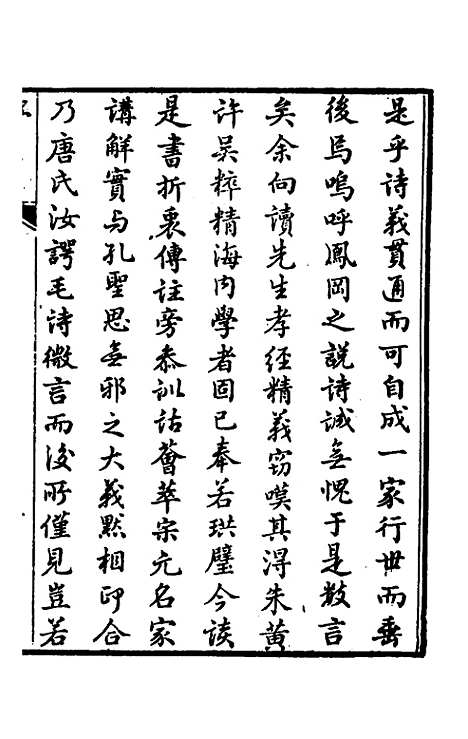 是乎詩義貫通而可自成一家行世而垂
後焉嗚呼鳳岡之說詩誠無愧于是數言
矣余向讀先生孝經精義竊嘆其淂朱黃
許吳粹精海内學者固已奉若珙璧今讀
是書折衷傳註旁叅訓詁薈萃宋元名家
講解實与孔聖思無邪之大義黙相印合
乃唐氏汝諤毛詩微言而後所僅見豈若